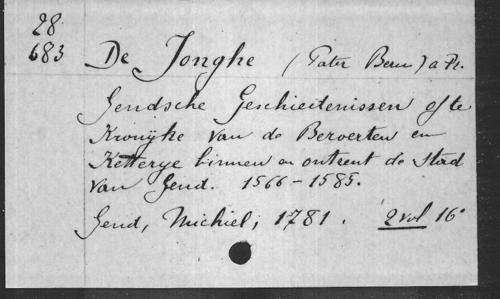 28
683
De Jonghe (Pater Bern)
Gendsche Geschiedenissen ofte
Kronijke van de Beroerten en
Ketterye binnen en ontrent de stad
van Gend. 1566-1585.
Gend, Michiel, 1781. 2 vol 16°